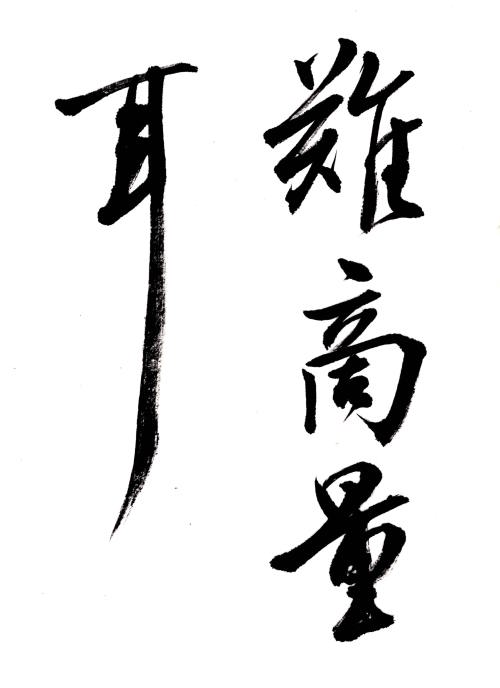 難商量
耳